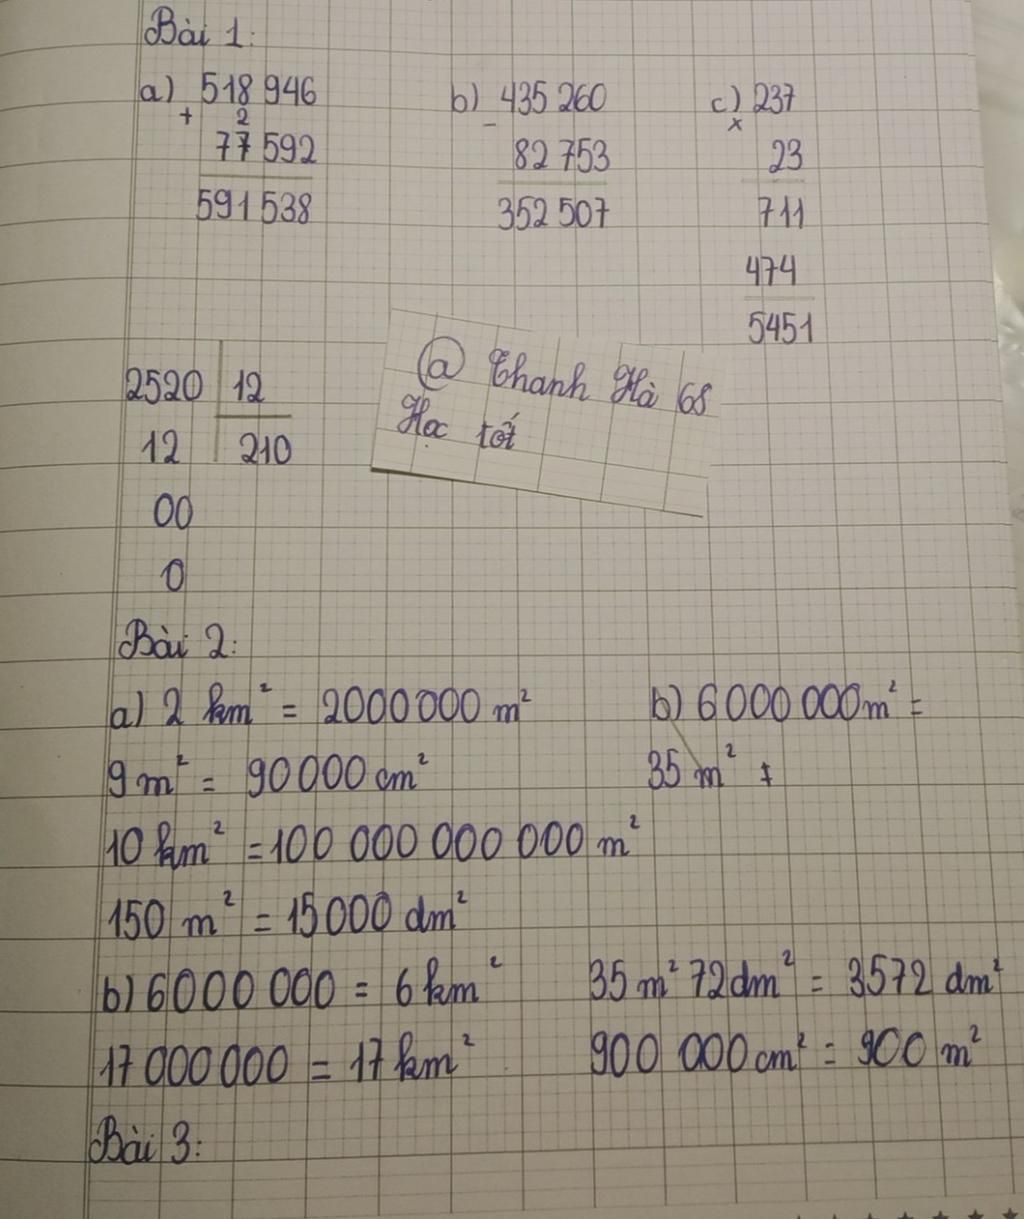 Bài 1:
a) 518 946 b) 435 260 c) 237
+ 2 - x
77 592 82 753 23
591 538 352 507 711
474
5451
2520 12
12 210
00
0
@ Thanh Hà 68
Học tốt
Bài 2:
a) 2 km² = 2000000 m² b) 6000 000m² =
9m² = 90000cm² 35 m² =
10 km² = 100 000 000 000 m²
150 m² = 15000 dm²
b) 6000 000 = 6km² 35m² 72dm² = 3572 dm²
17 000 000 = 17km² 900 000cm² = 900 m²
Bài 3: